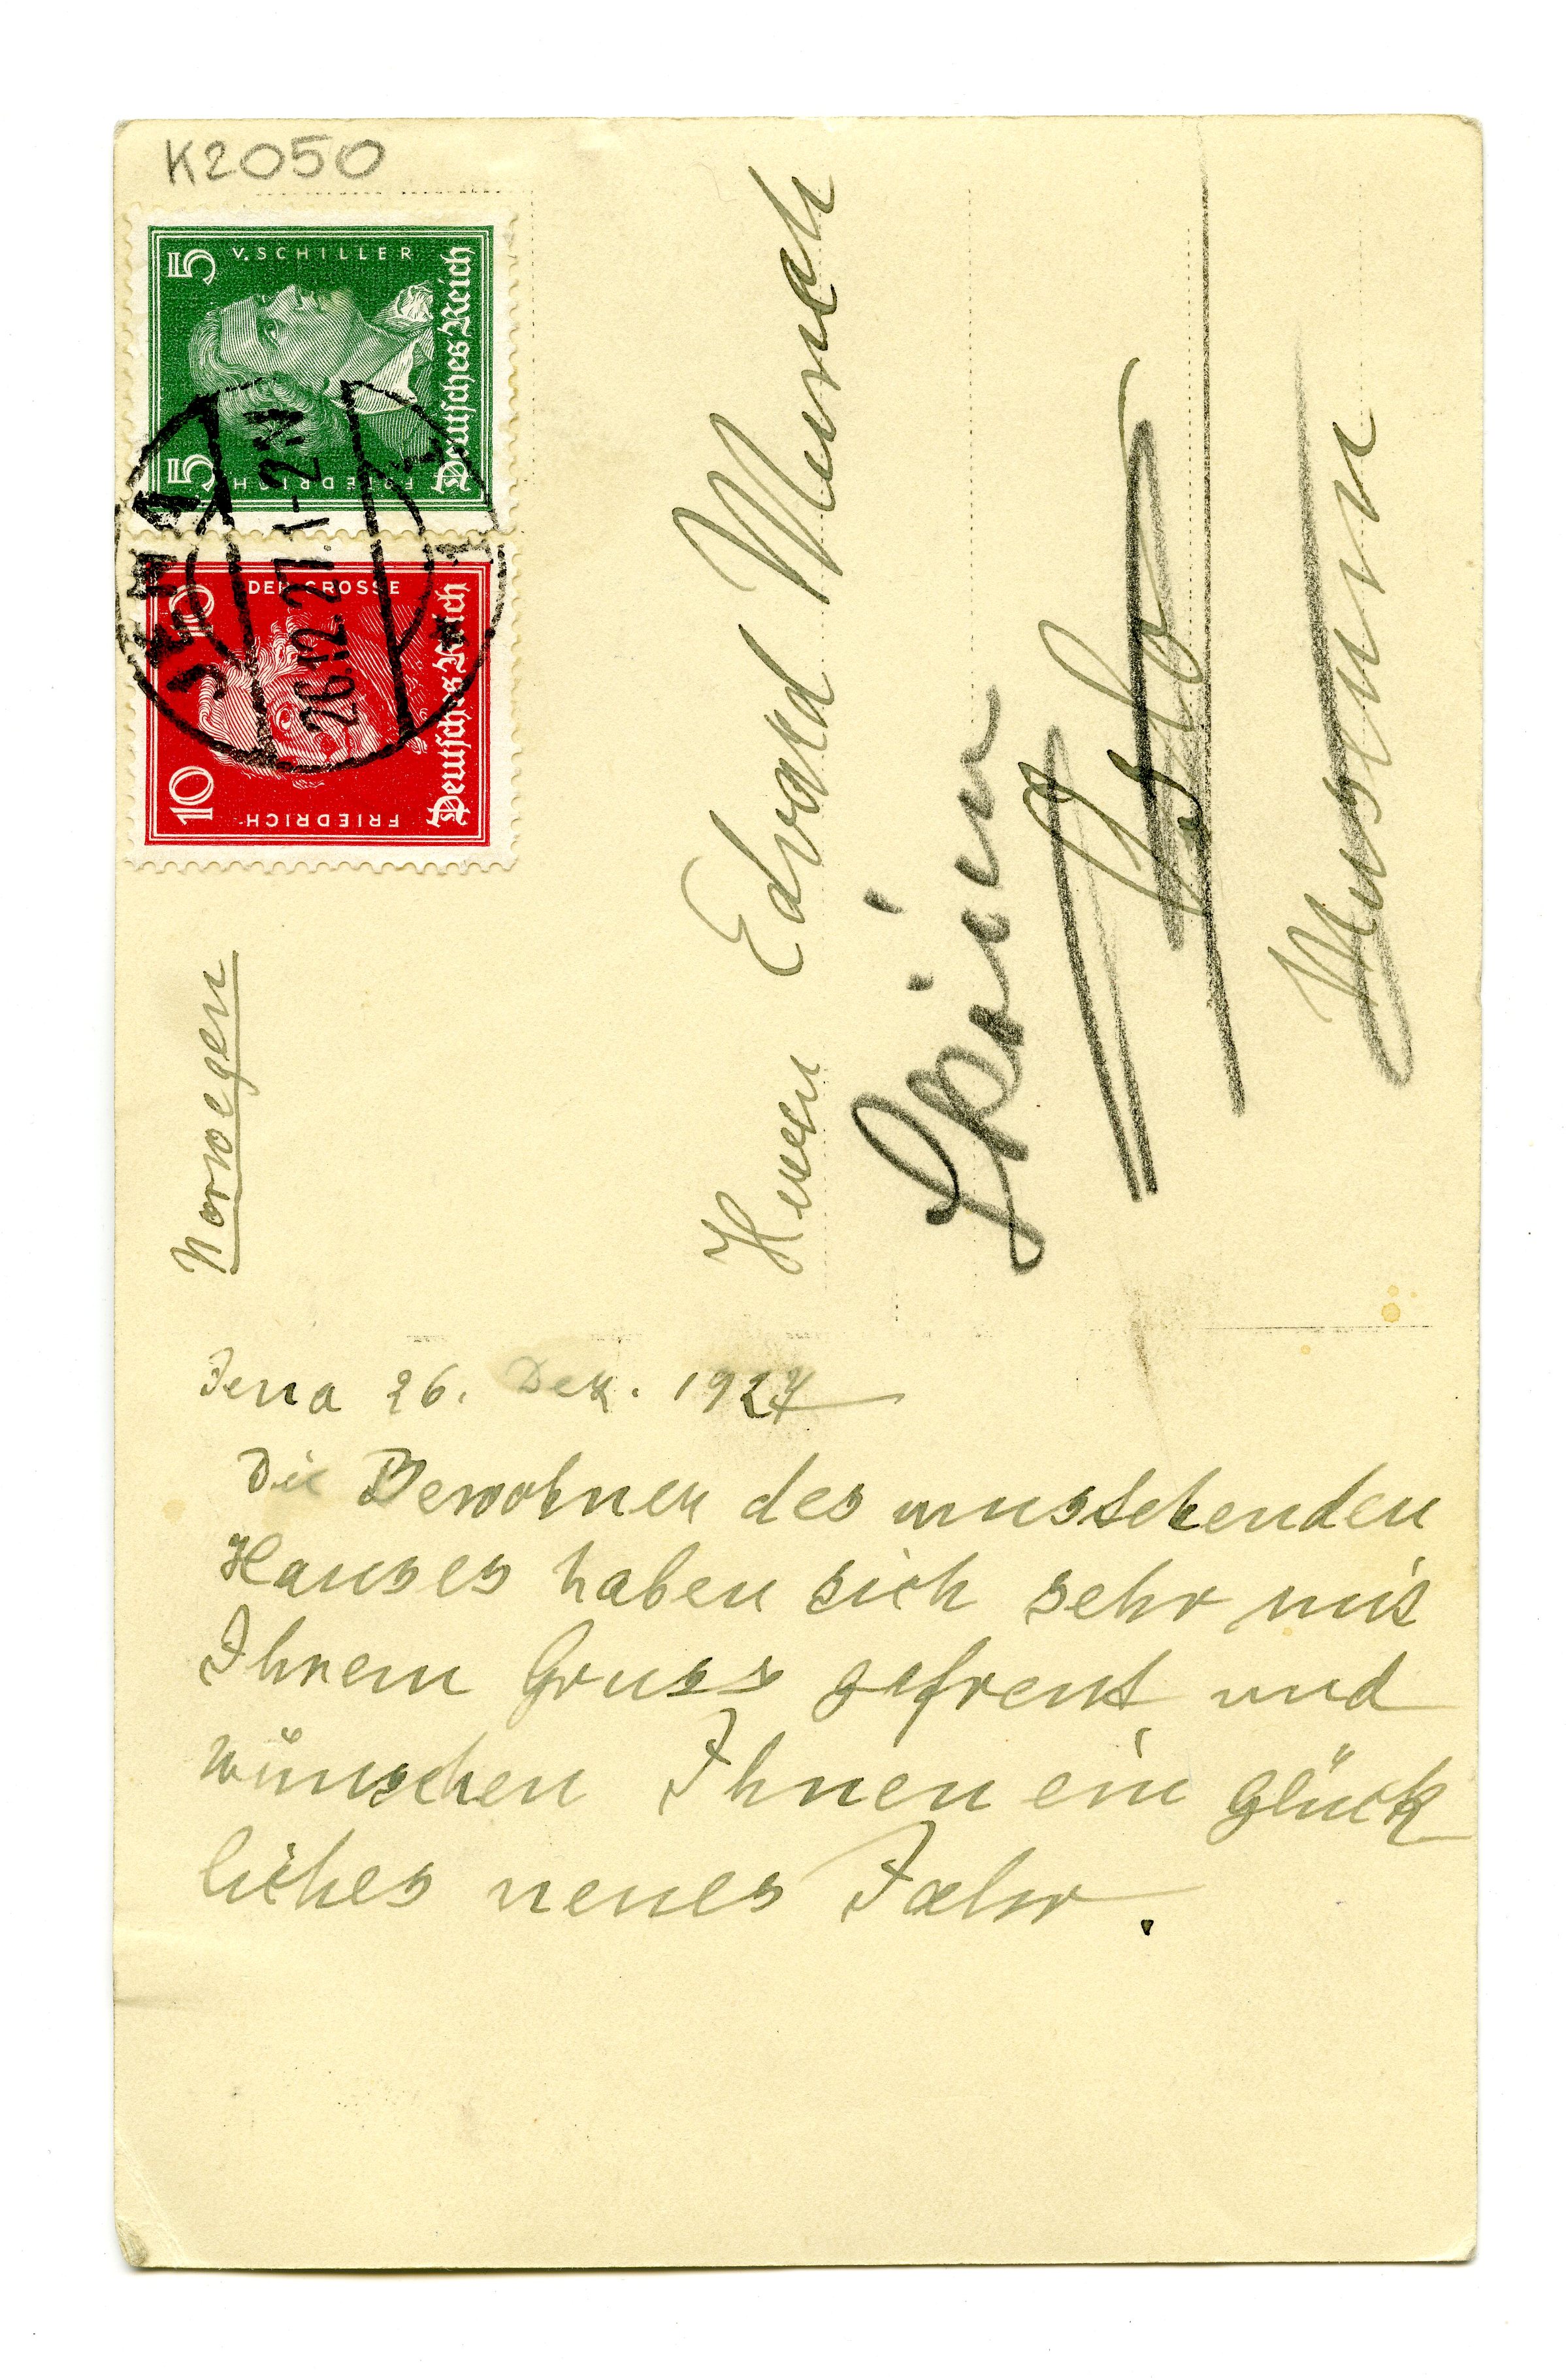 K2050
5 V. SCHILLER 5
FRIEDRICH
Deutsches Reich
10 DER GROSSE 10
FRIEDRICH
Deutsches Reich
JENA
26.12.27. 1-2 N
Norwegen
Herrn Edvard Munch
Skøien
Oslo
Museum
Jena 26. Dez. 1927
Die Bewohner des umstehenden
Hauses haben sich sehr mit
Ihrem Gruss gefreut und
wünschen Ihnen ein glück
liches neues Jahr.